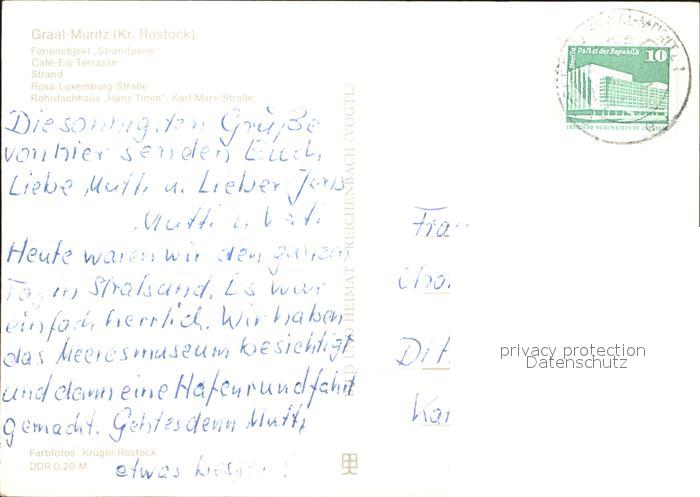 Graal-Müritz (Kr. Rostock)
Ferienobjekt „Strandperle"
Café-Eis-Terrasse
Strand
Rosa-Luxemburg-Straße
Rohrdachhaus „Hans Timm", Karl-Marx-Straße
Die sonnigsten Grüße
von hier senden Euch,
Liebe Mutti u. Lieber Jens
Mutti u. Vati.
Heute waren wir den ganzen
Tag in Stralsund. Es war
einfach herrlich. Wir haben
das Meeresmuseum besichtigt
und dann eine Hafenrundfahrt
gemacht. Geht es denn Mutti
etwas besser?
Farbfotos: Krüger, Rostock
DDR 0,20 M
BILD UND HEIMAT REICHENBACH (VOGTL)
Palast der Republik
10
Fra
Cha
Dit
Kar
privacy protection
Datenschutz